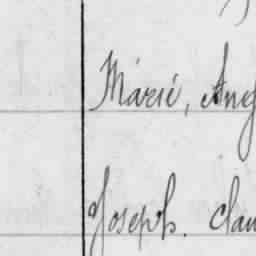 Marie, Ang
Joseph. Clau